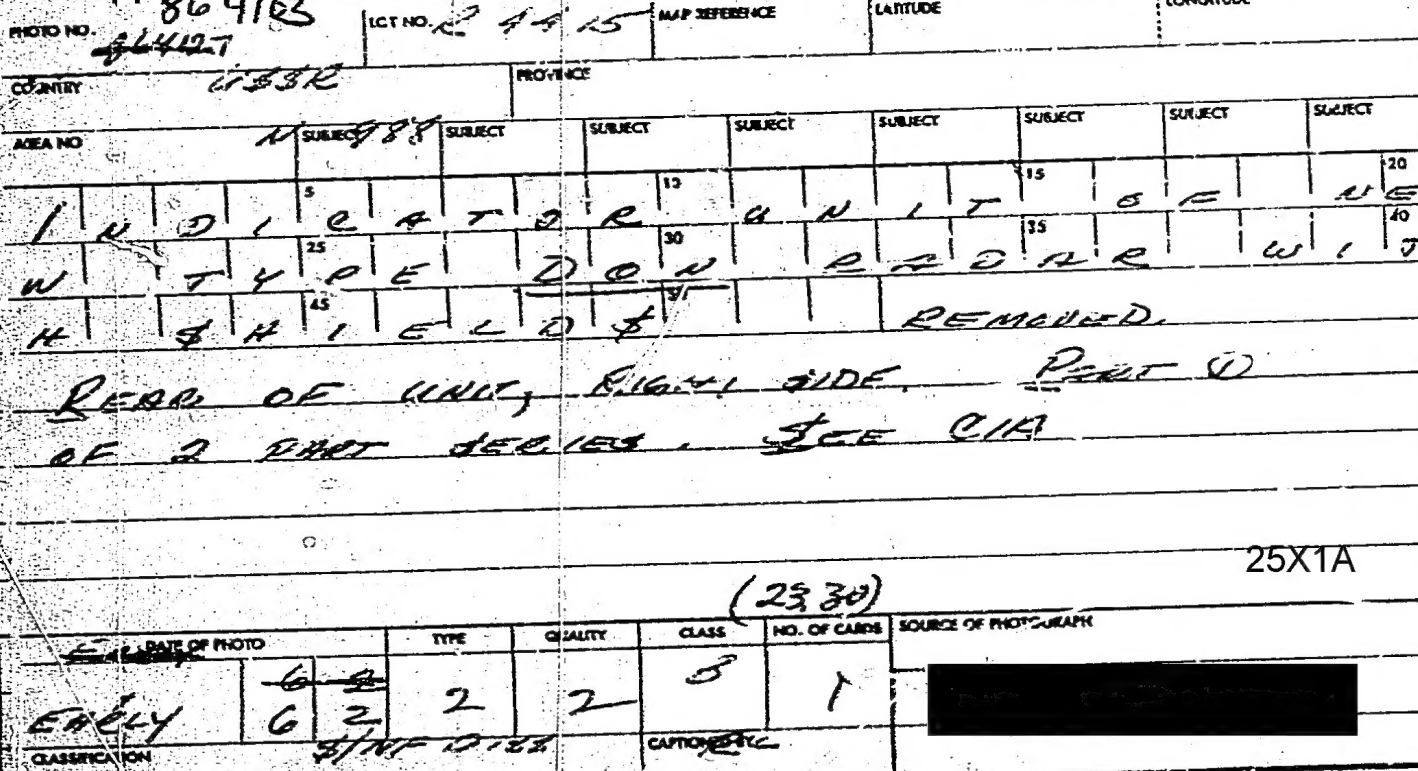 864185
PHOTO NO. LCT NO. R 4415 MAP REFERENCE LATITUDE LONGITUDE
COUNTRY USSR PROVINCE
AREA NO N SUBJECT 988 SUBJECT SUBJECT SUBJECT SUBJECT SUBJECT SUBJECT SUBJECT
5 10 15 20
INDICATOR UNIT OF NE
25 30 35 40
W TYPE DON RADAR WIT
45
H SHIELDS REMOVED.
REAR OF UNIT, RIGHT SIDE. PART 1
OF 2 PART SERIES. SEE CIA
25X1A
(23,30)
DATE OF PHOTO TYPE QUALITY CLASS NO. OF CARDS SOURCE OF PHOTOGRAPH
EARLY 62 2 2 3 1
CLASSIFICATION S/NF DISS CAPTIONED BY